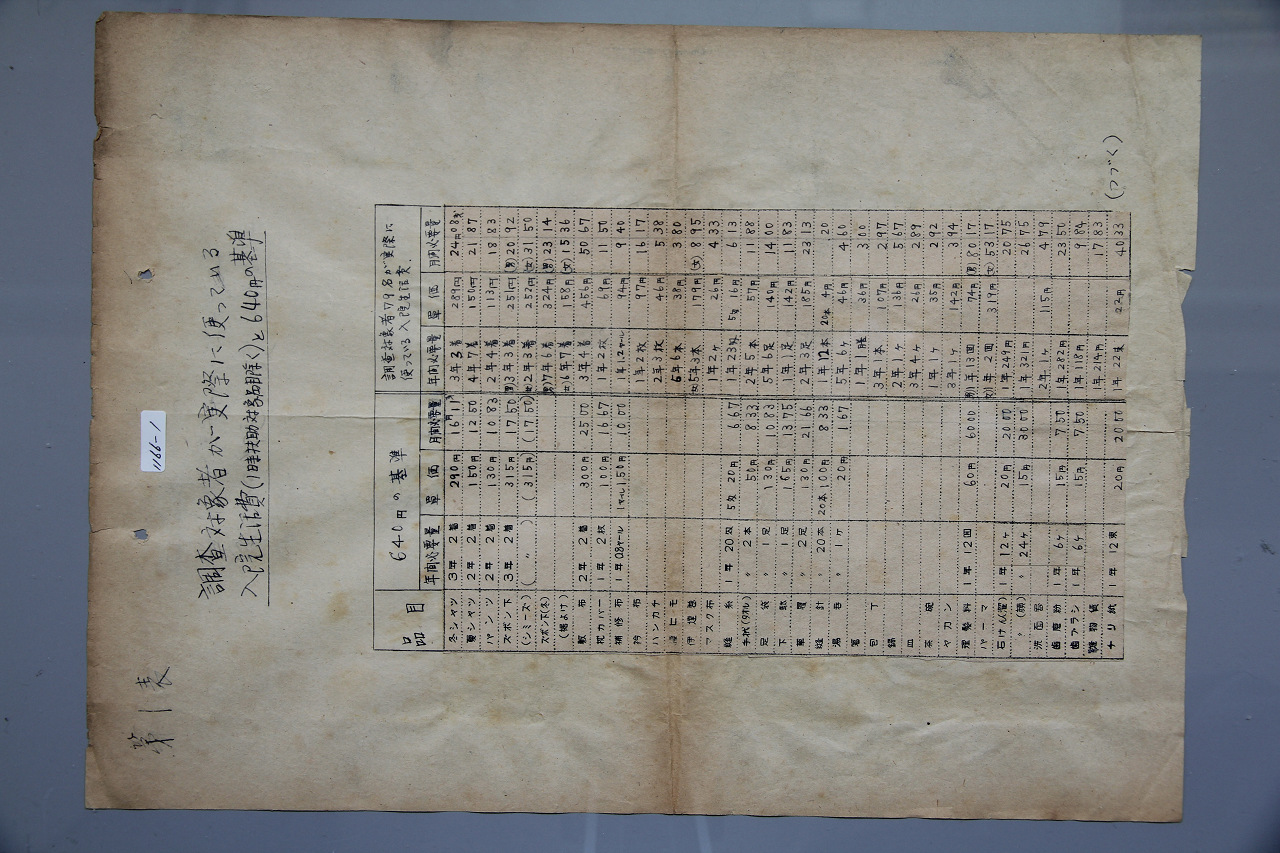 1166-1
第1表
調査対象者が実際に使っている
入院生活費(1時扶助対象品目除く)と640円の基準
品目 640円の基準 調査対象者79名が実際に使っている入院生活費
年間必要量 単価 月間必要量 年間必要量 単価 月間必要量
冬シャツ 3年2着 290円 16円11 3年3着 289円 24円08
夏シャツ 2年2着 150円 12 50 4年7着 150円 21 87
パンツ 2年2着 130円 10 83 2年4着 113円 18 83
ズボン下 3年2着 315円 17 50 (男)3年3着 251円 (男)20 92
(シミーズ) ( 〃 ) (315円) (17 50) (女)2年3着 252円 (女)31 50
ズボン下(冬) (男)7年6着 324円 (男)23 14
(女)6年7着 158円 (女)15 36
敷布 2年2着 300円 25 00 3年4着 456円 50 67
枕カバー 1年2枚 100円 16 67 1年2枚 69円 11 50
補修布 1年0.8ヤール 1ヤール150円 10 00 1年1.2ヤール 94円 9 40
布 1年2枚 97円 16 17
ハンカチ 2年3枚 46円 5 38
腰ヒモ 6年6本 38円 3 80
伊達巻 (女)5年3本 179円 (女)8 95
マスク布 1年2ヶ 26円 4 33
縫糸 1年20匁 5匁20円 6 67 1年23匁 5匁16円 6 13
手拭(タオル) 〃 2本 50円 8 33 2年5本 57円 11 88
足袋 〃 1足 130円 10 83 5年6足 140円 14 00
下駄 〃 1足 165円 13 75 1年1足 142円 11 83
草履 〃 2足 130円 21 66 2年3足 185円 23 13
縫針 〃 20本 20本100円 8 33 1年12本 20本4円 20
湯呑 〃 1ヶ 20円 1 67 5年6ヶ 46円 4 60
箸 1年1膳 36円 3 00
包丁 3年1本 107円 2 97
鍋 2年1ヶ 136円 5 67
皿 3年4ヶ 26円 2 89
茶碗 1年1ヶ 35円 2 92
ヤカン 3年1ヶ 142円 3 94
理髪料 1年12回 60円 60 00 (男)1年13回 74円 (男)80 17
パーマ (女)1年2回 319円 (女)53 17
石けん(洗) 1年12ヶ 20円 20 00 1年249円 20 75
〃(顔) 〃 24ヶ 15円 30 00 1年321円 26 75
洗面器 2年1ヶ 115円 4 79
歯磨粉 1年6ヶ 15円 7.50 1年282円 23 50
歯ブラシ 1年6ヶ 15円 7.50 1年118円 9 84
1年214円 17 83
チリ紙 1年12束 20円 20 00 1年22束 22円 40 33
(つづく)